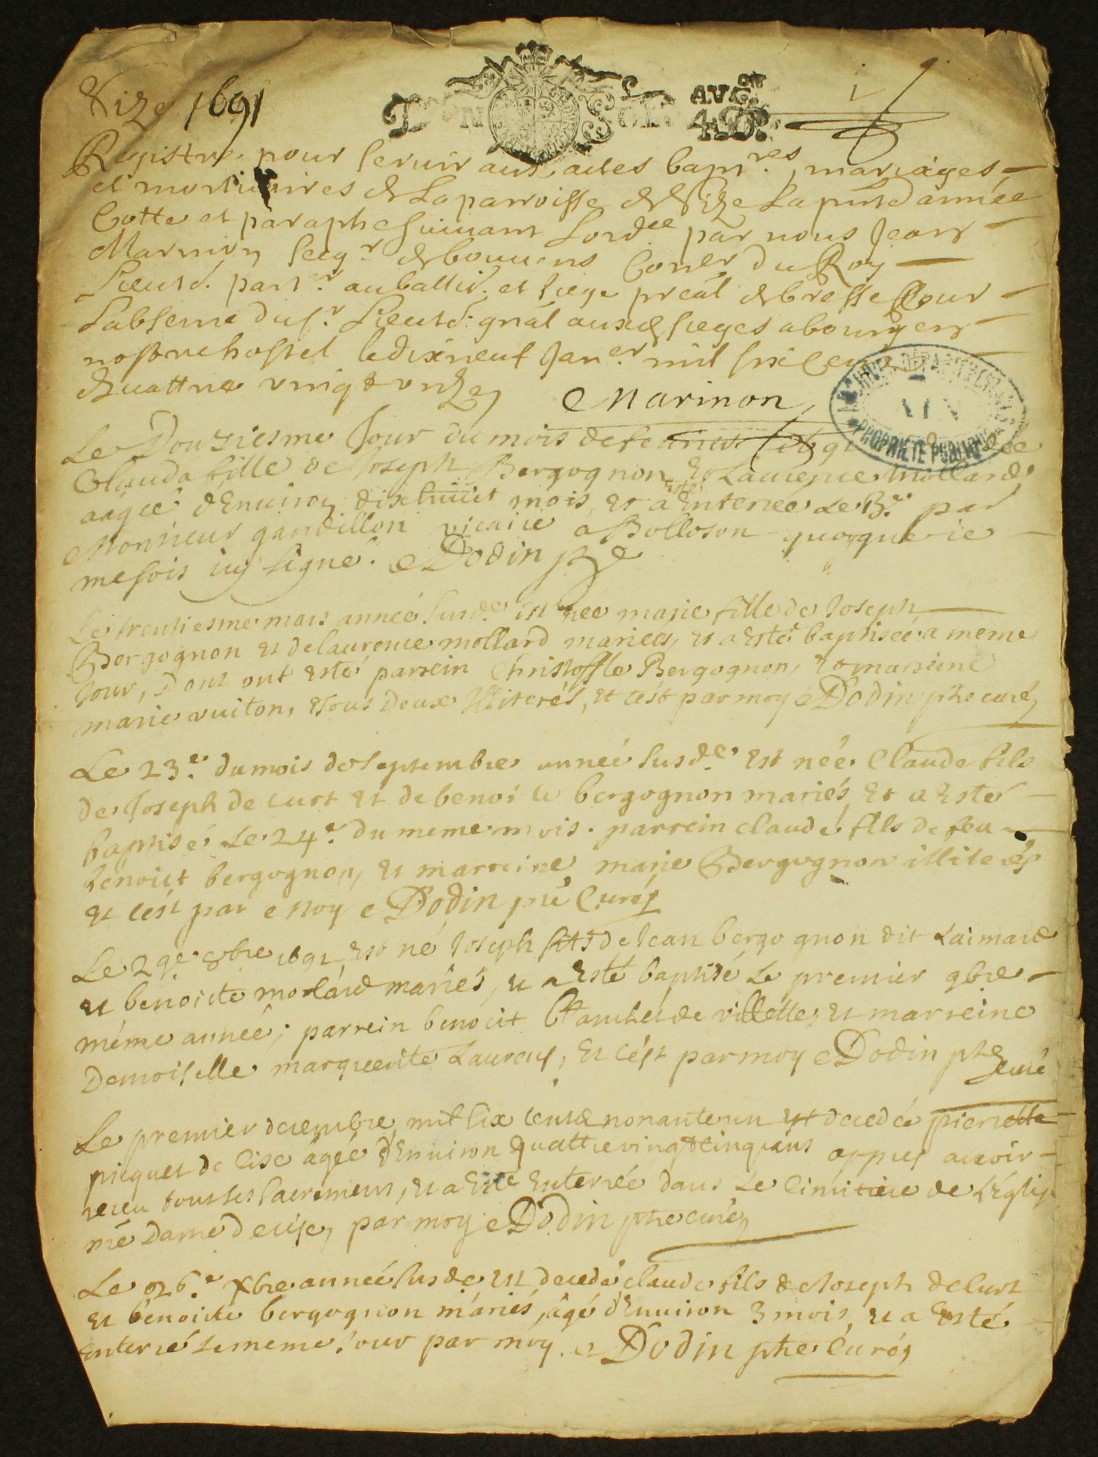 Size 1691
AVG.
i
Registre pour servir aux actes bapt.res mariages
et mortuaires de La parroisse de Size La pnte année
Cotte et paraphe suivant Lord.ce par nous Jean
Marinon secq.r de bouvens Coner du Roy
Lieut. part.r au balli. et siege preal de bresse pour
Labsence du s.r Lieut. gnal auxd sieges a bourg en
nostre hostel le dixneuf Jan.er mil six cens
Quattre vingt onze
Marinon
Le Douziesme Jour du mois de
Clauda fille de Joseph Bergognon et Laurence Mollard
aagée d'Environ dixhuit mois, et a esté Enterrée Le 13.e par
Monsieur gandillon vicaire a Bolloson quoyque ie
me sois icy signé. Dodin
Le trentiesme mars année susd.e est née marie fille de Joseph
Bergognon et de laurence mollard mariés, et a esté baptisée a meme
Jour, Dont ont esté parrein Christoffle Bergognon, et marreine
marie vuiton, tous deux illiterés, et c'est par moy Dodin ptre curé
Le 23.e du mois de septembre année susd.e est née Claude fils
de Joseph de curt et de benoite bergognon mariés, et a esté
baptisé Le 24.e du meme mois. parrein claude fils de feu
benoict bergognon, et marreine marie Bergognon illiterés
et c'est par Moy Dodin ptre Curé
Le 29.e 8bre 1691 est né Joseph fils de Jean bergognon dit Laimard
et benoicte mollard mariés, et a Esté baptisé Le premier 9bre
méme année; parrein benoict de villette, et marreine
Demoiselle marguerite Laureus, et c'est par moy Dodin ptre
curé
Le premier decembre mil six cents nonante un est decedée pierrette
picquet de cise agée d'Environ quattre vingt cinq ans appres avoir
receu tous ses sacremens, et a esté Enterrée dans Le cimitiere de L'Eglise
Dame de cise, par moy Dodin ptre curé
Le 26.e Xbre année susd.e est decedé claude fils de Joseph de Curt
et benoicte bergognon mariés, âgé d'Environ 3 mois, et a esté
Enterré le meme Jour par moy. Dodin ptre Curé
ARCHIVES DEPARTEMENTALES
AIN
PROPRIETE PUBLIQUE